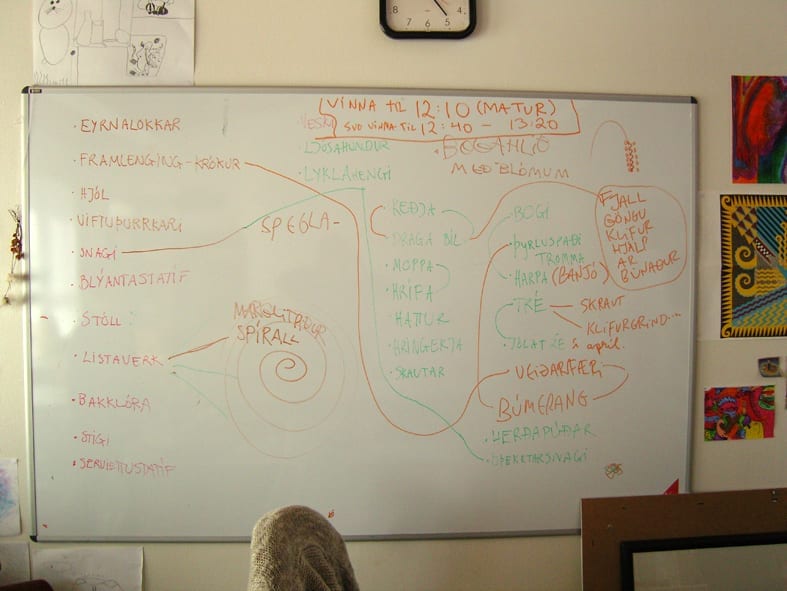 8 7 6 5 4
VINNA TIL 12:10 (MATUR)
SVO VINNA TIL 12:40 - 13:20
VESKI
LJÓSAHUNDUR
LYKLAHENGI
MEÐ BLÓMUM
· EYRNALOKKAR
· FRAMLENGING - KRÓKUR
· HJÓL
· VIFTUÞURRKARI
· SNAGI
· BLÝANTASTATÍF
· STÓLL
· LISTAVERK
· BAKKLÓRA
· STIGI
· SERVIETTUSTATÍF
SPEGLA-
MARGLITAÐUR
SPÍRALL
· KEÐJA
· DRAGA BÍL
· MOPPA
· HRÍFA
· HATTUR
· HRINGERJA
· SKAUTAR
· BOGI
· ÞYRLUSPAÐI
TROMMA
· HARPA (BANJÓ)
· TRÉ
SKRAUT
KLIFURGRIND...
· JÓLATRÉ 5 apríl.
VEIÐARFÆRI
BÚMERANG
· HERÐAPÚÐAR
FJALL
GÖNGU
KLIFUR
HJÁLP
AR
BÚNAÐUR